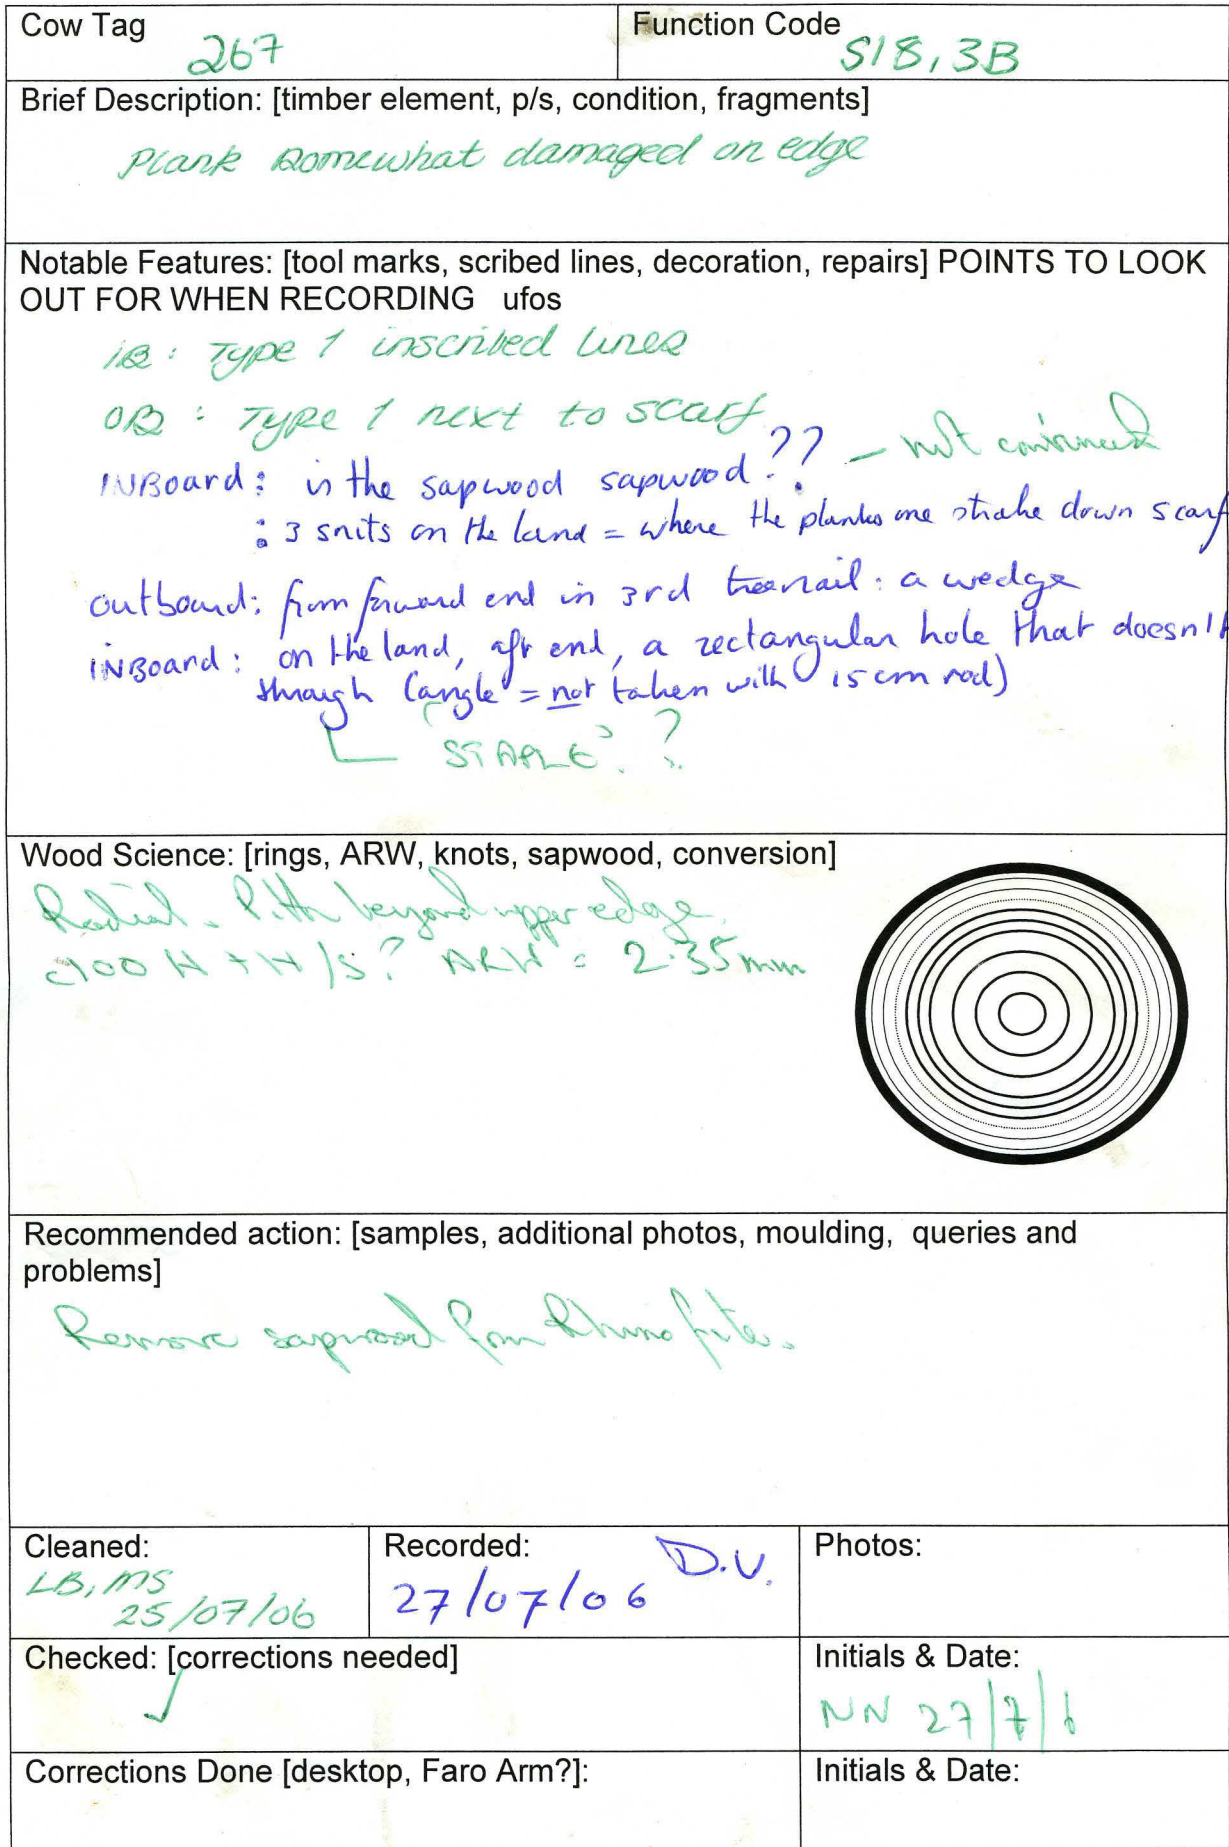 Cow Tag
267
Function Code
S18, 3B
Brief Description: [timber element, p/s, condition, fragments]
Plank somewhat damaged on edge
Notable Features: [tool marks, scribed lines, decoration, repairs] POINTS TO LOOK
OUT FOR WHEN RECORDING ufos
iB : Type 1 inscribed lines
OB : Type 1 next to scarf
INBoard : is the sapwood sapwood ?? – not convinced
: 3 snits on the land = where the planks one strake down scarf
outboard : from forward end in 3rd treenail : a wedge
INBoard : on the land, aft end, a rectangular hole that doesn't
through (angle = not taken with 15 cm rod)
STAPLE ?
Wood Science: [rings, ARW, knots, sapwood, conversion]
Radial. Pith beyond upper edge.
c100 H + H/S? ARW = 2.35mm
Recommended action: [samples, additional photos, moulding, queries and
problems]
Remove sapwood from Rhino
Cleaned:
LB, MS
25/07/06
Recorded:
D.V.
27/07/06
Photos:
Checked: [corrections needed]
✓
Initials & Date:
NN 27/7/6
Corrections Done [desktop, Faro Arm?]:
Initials & Date: